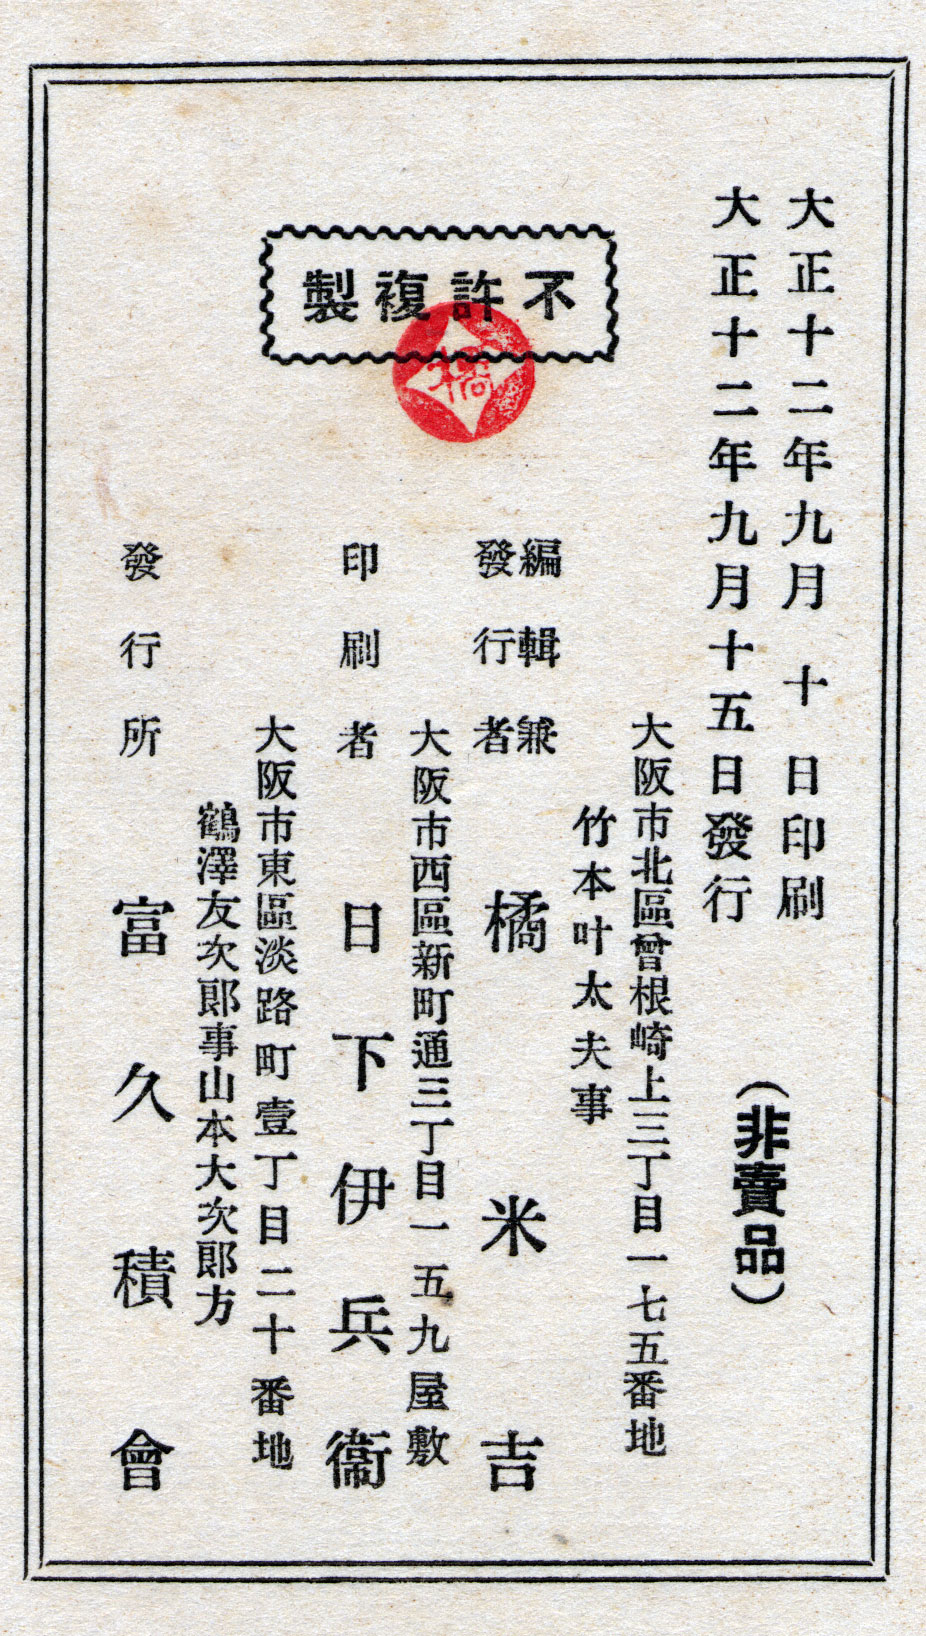 大正十二年九月　十日印刷
大正十二年九月十五日發行
（非賣品）
不許複製
橘
大阪市北區曾根崎上三丁目一七五番地
竹本叶太夫事
編輯兼
發行者
橘米吉
大阪市西區新町通三丁目一五九屋敷
印刷者
日下伊兵衞
大阪市東區淡路町壹丁目二十番地
鶴澤友次郎事山本大次郎方
發行所
富久積會